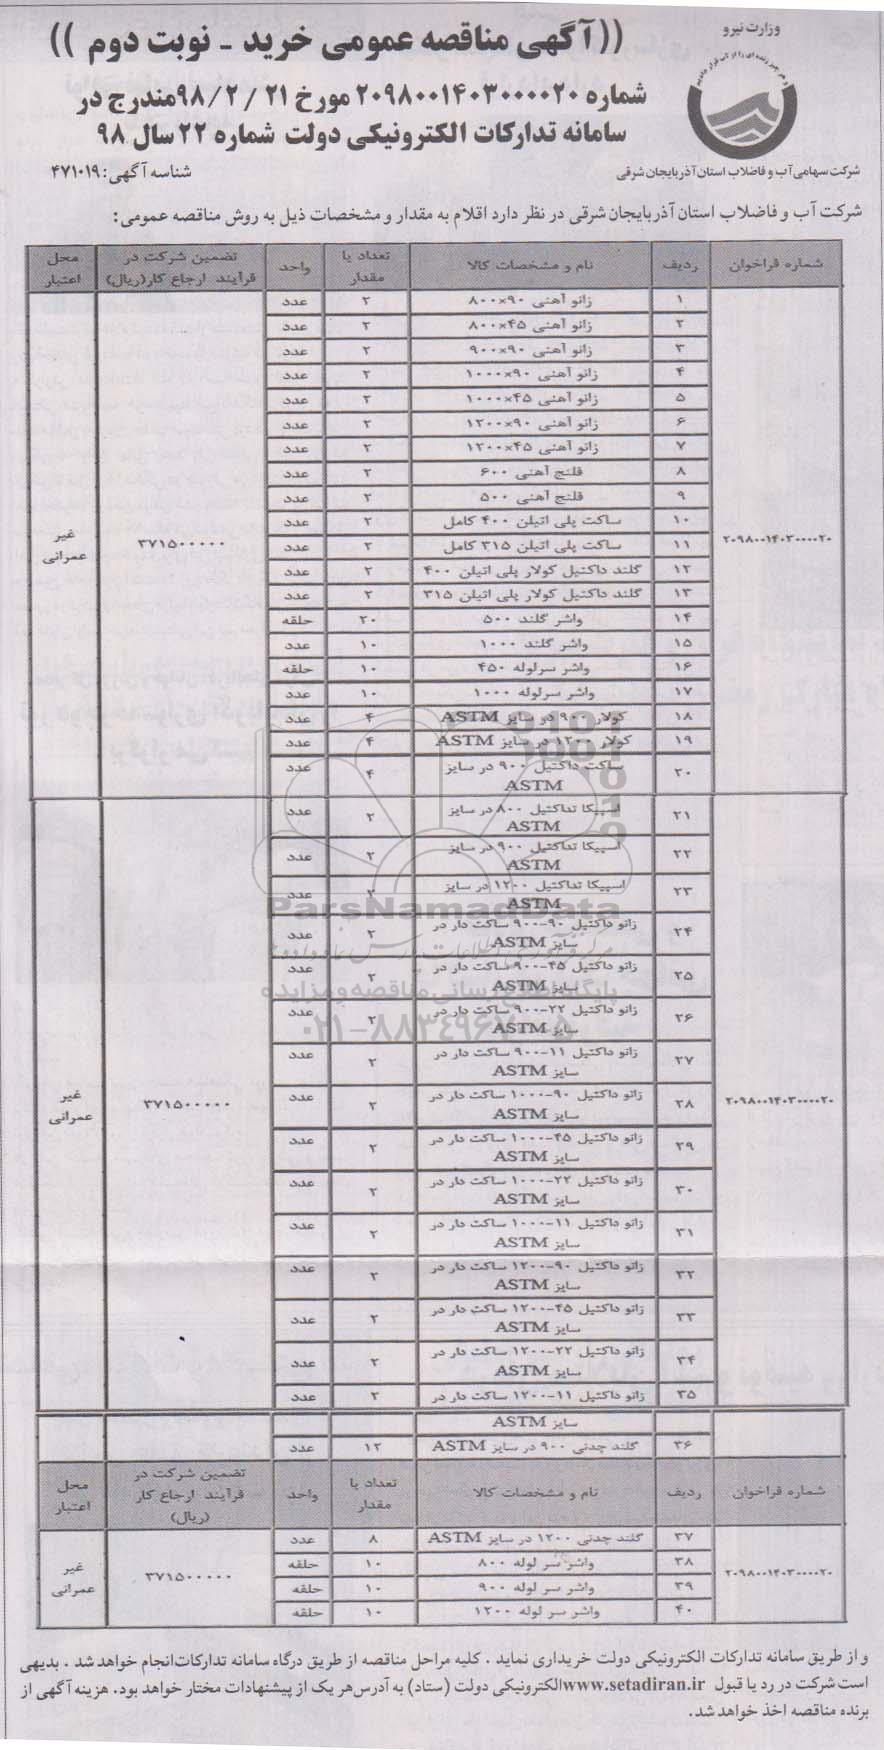 وزارت نیرو
((آگهی مناقصه عمومی خرید - نوبت دوم ))
شماره ۲۰۹۸۰۰۱۴۰۳۰۰۰۰۲۰ مورخ ۲۱ / ۲ / ۹۸ مندرج در
سامانه تدارکات الکترونیکی دولت شماره ۲۲ سال ۹۸
شرکت سهامی آب و فاضلاب استان آذربایجان شرقی
شناسه آگهی: ۴۷۱۰۱۹
شرکت آب و فاضلاب استان آذربایجان شرقی در نظر دارد اقلام به مقدار و مشخصات ذیل به روش مناقصه عمومی:
شماره فراخوان | ردیف | نام و مشخصات کالا | تعداد یا مقدار | واحد | تضمین شرکت در فرآیند ارجاع کار(ریال) | محل اعتبار
۲۰۹۸۰۰۱۴۰۳۰۰۰۰۲۰ | ۳۷۱۵۰۰۰۰۰ | غیر عمرانی
۱ زانو آهنی ۹۰×۸۰۰ ۲ عدد
۲ زانو آهنی ۴۵×۸۰۰ ۲ عدد
۳ زانو آهنی ۹۰×۹۰۰ ۲ عدد
۴ زانو آهنی ۹۰×۱۰۰۰ ۲ عدد
۵ زانو آهنی ۴۵×۱۰۰۰ ۲ عدد
۶ زانو آهنی ۹۰×۱۲۰۰ ۲ عدد
۷ زانو آهنی ۴۵×۱۲۰۰ ۲ عدد
۸ فلنج آهنی ۶۰۰ ۲ عدد
۹ فلنج آهنی ۵۰۰ ۲ عدد
۱۰ ساکت پلی اتیلن ۴۰۰ کامل ۲ عدد
۱۱ ساکت پلی اتیلن ۳۱۵ کامل ۲ عدد
۱۲ گلند داکتیل کولار پلی اتیلن ۴۰۰ ۲ عدد
۱۳ گلند داکتیل کولار پلی اتیلن ۳۱۵ ۲ عدد
۱۴ واشر گلند ۵۰۰ ۲۰ حلقه
۱۵ واشر گلند ۱۰۰۰ ۱۰ عدد
۱۶ واشر سرلوله ۴۵۰ ۱۰ حلقه
۱۷ واشر سرلوله ۱۰۰۰ ۱۰ عدد
۱۸ کولار ۹۰۰ دو سایز ASTM ۴ عدد
۱۹ کولار ۱۲۰۰ در سایز ASTM ۴ عدد
۲۰ ساکت داکتیل ۹۰۰ در سایز ASTM ۴ عدد
۲۰۹۸۰۰۱۴۰۳۰۰۰۰۲۰ | ۳۷۱۵۰۰۰۰۰ | غیر عمرانی
۲۱ اسپیکا تداکتیل ۸۰۰ در سایز ASTM ۲ عدد
۲۲ اسپیکا تداکتیل ۹۰۰ در سایز ASTM ۲ عدد
۲۳ اسپیکا تداکتیل ۱۲۰۰ در سایز ASTM ۲ عدد
۲۴ زانو داکتیل ۹۰-۹۰۰ ساکت دار در سایز ASTM ۲ عدد
۲۵ زانو داکتیل ۴۵-۹۰۰ ساکت دار در سایز ASTM ۲ عدد
۲۶ زانو داکتیل ۲۲-۹۰۰ ساکت دار در سایز ASTM ۲ عدد
۲۷ زانو داکتیل ۱۱-۹۰۰ ساکت دار در سایز ASTM ۲ عدد
۲۸ زانو داکتیل ۹۰-۱۰۰۰ ساکت دار در سایز ASTM ۲ عدد
۲۹ زانو داکتیل ۴۵-۱۰۰۰ ساکت دار در سایز ASTM ۲ عدد
۳۰ زانو داکتیل ۲۲-۱۰۰۰ ساکت دار در سایز ASTM ۲ عدد
۳۱ زانو داکتیل ۱۱-۱۰۰۰ ساکت دار در سایز ASTM ۲ عدد
۳۲ زانو داکتیل ۹۰-۱۲۰۰ ساکت دار در سایز ASTM ۲ عدد
۳۳ زانو داکتیل ۴۵-۱۲۰۰ ساکت دار در سایز ASTM ۲ عدد
۳۴ زانو داکتیل ۲۲-۱۲۰۰ ساکت دار در سایز ASTM ۲ عدد
۳۵ زانو داکتیل ۱۱-۱۲۰۰ ساکت دار در ۲ عدد
سایز ASTM
۳۶ گلند چدنی ۹۰۰ در سایز ASTM ۱۲ عدد
شماره فراخوان | ردیف | نام و مشخصات کالا | تعداد یا مقدار | واحد | تضمین شرکت در فرآیند ارجاع کار (ریال) | محل اعتبار
۲۰۹۸۰۰۱۴۰۳۰۰۰۰۲۰ | ۳۷۱۵۰۰۰۰۰ | غیر عمرانی
۳۷ گلند چدنی ۱۲۰۰ در سایز ASTM ۸ عدد
۳۸ واشر سر لوله ۸۰۰ ۱۰ حلقه
۳۹ واشر سر لوله ۹۰۰ ۱۰ حلقه
۴۰ واشر سر لوله ۱۲۰۰ ۱۰ حلقه
و از طریق سامانه تدارکات الکترونیکی دولت خریداری نماید . کلیه مراحل مناقصه از طریق درگاه سامانه تدارکات انجام خواهد شد . بدیهی
است شرکت در رد یا قبول www.setadiran.ir الکترونیکی دولت (ستاد) به آدرس هر یک از پیشنهادات مختار خواهد بود. هزینه آگهی از
برنده مناقصه اخذ خواهد شد.
ParsNamadData
پایگاه اطلاع رسانی مناقصه و مزایده
۰۲۱-۸۸۳۴۹۶۷۰-۵